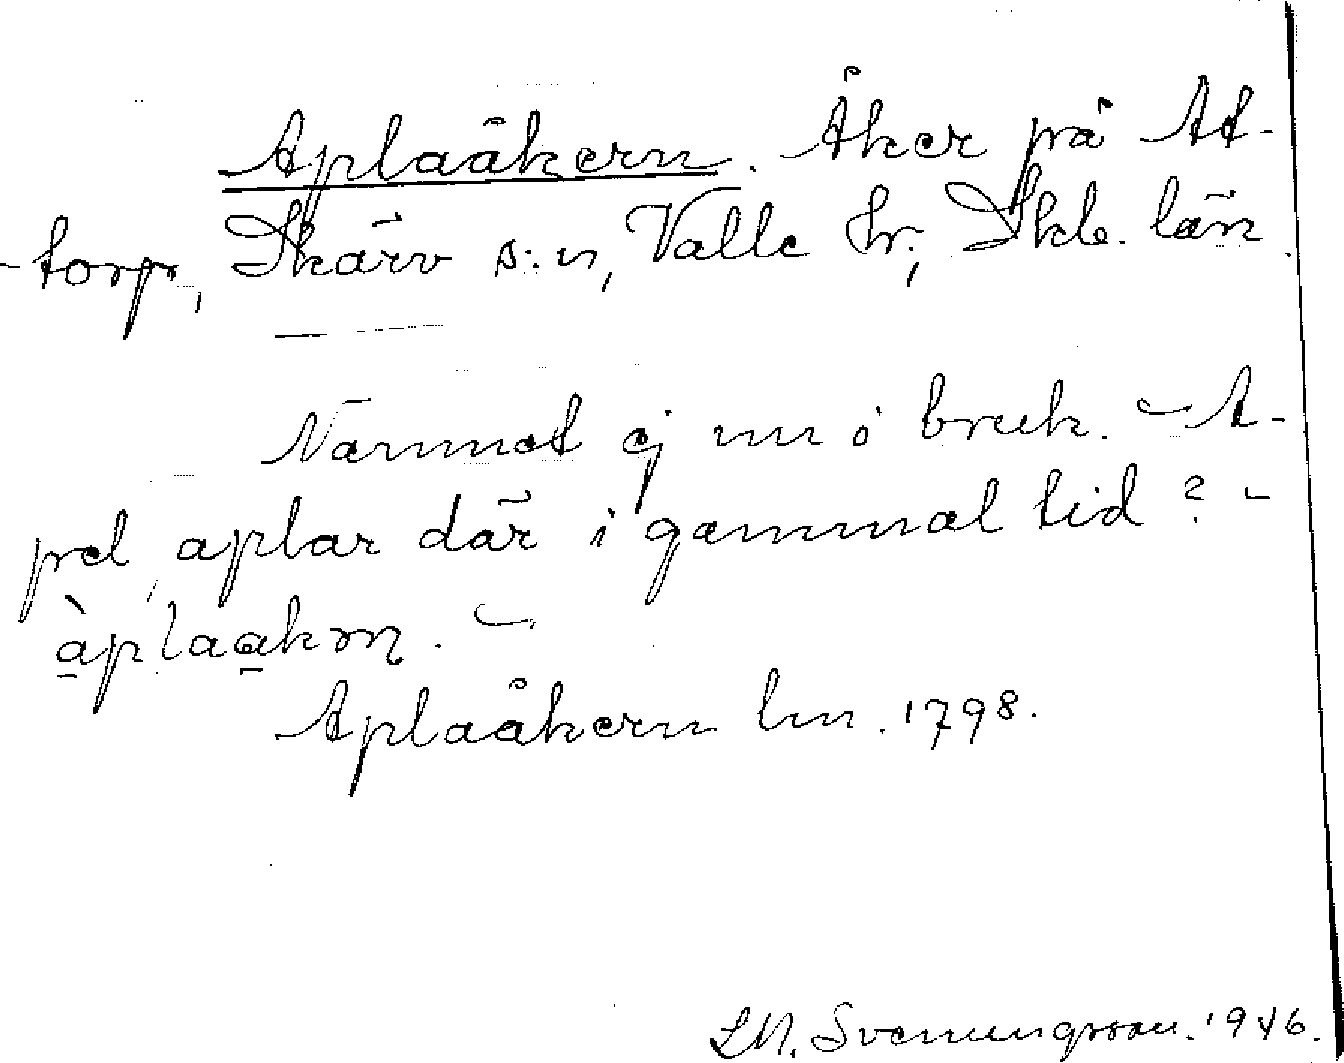 Aplaåkern. Åker på At-
-torp, Skärv s:n, Valle hr, Skb. län.
Namnet ej nu i bruk. – A-
pel, aplar där i gammal tid? –
àplaakrn. –
Aplaåkern lm. 1798.
S.M. Svenungsson. 1946.